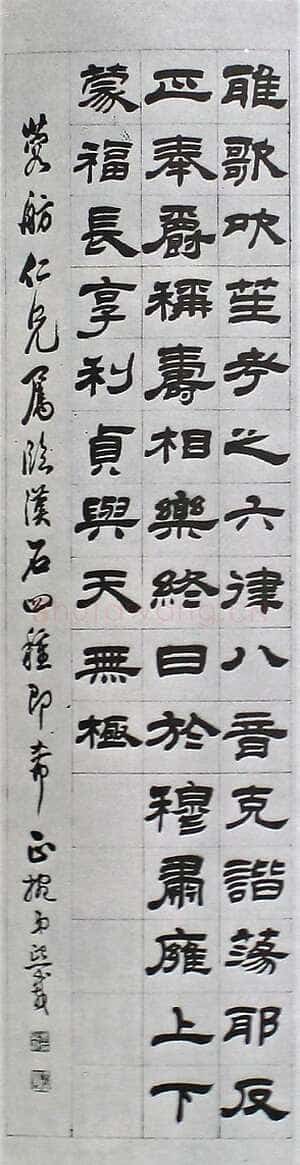 雅歌吹笙考之六律八音克諧蕩邪反
正奉爵稱壽相樂終日於穆肅廱上下
蒙福長享利貞與天無極
舫仁兄屬臨漢石四種即希正